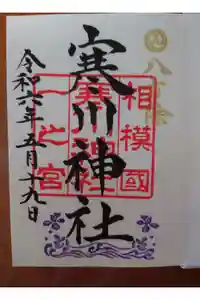 八方除
相模國
寒川神社
一之宮
令和六年五月十九日